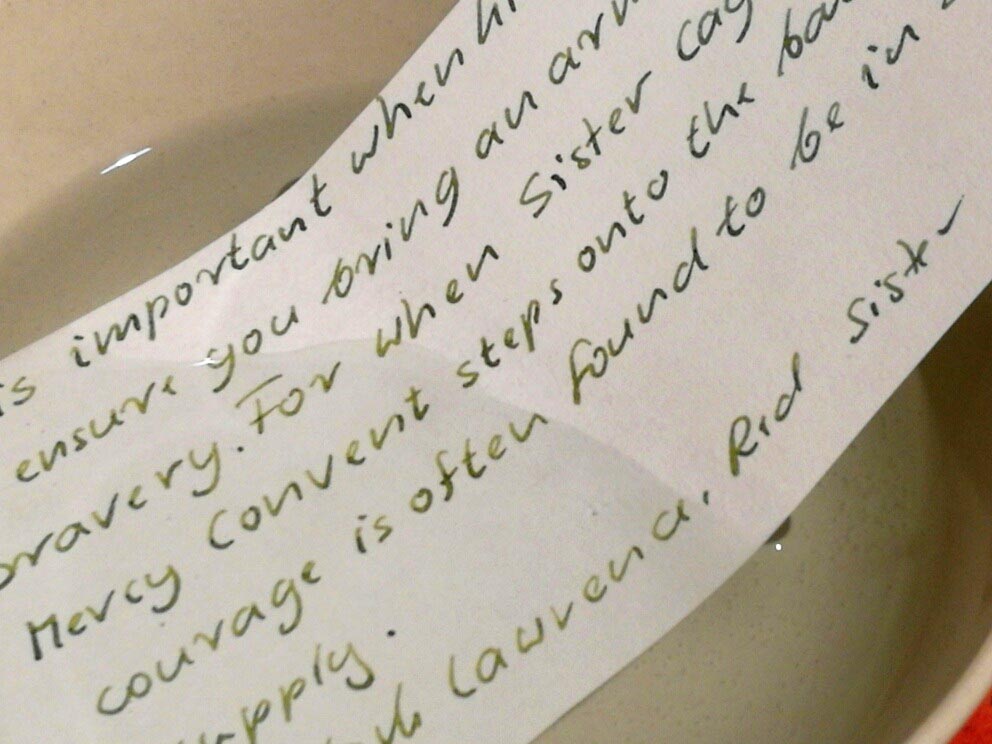 is important when
ensure you bring an
bravery. For when Sister
Mercy Convent steps onto the
courage is often found to be in
supply.
Lawrence, Red